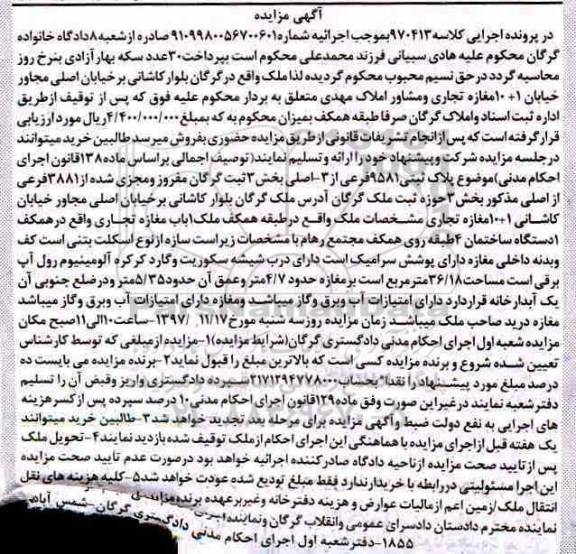 آگهی مزایده
در پرونده اجرایی کلاسه۹۷۰۴۱۳بموجب اجرائیه شماره۹۱۰۹۹۸۰۰۵۶۷۰۰۶۰۱ صادره ازشعبه۸دادگاه خانواده
گرگان محکوم علیه هادی سبیانی فرزند محمدعلی محکوم است بپرداخت۳۰عدد سکه بهار آزادی بنرخ روز
محاسبه گردد درحق نسیم محبوب محکوم گردیده لذا ملک واقع درگرگان بلوار کاشانی برخیابان اصلی مجاور
خیابان ۱+۱۰مغازه تجاری ومشاور املاک مهدی متعلق به بردار محکوم علیه فوق که پس از توقیف ازطریق
اداره ثبت اسناد واملاک گرگان صرفا طبقه همکف بمیزان محکوم به که بمبلغ۴/۴۰۰/۰۰۰/۰۰۰ریال مورد ارزیابی
قرارگرفته است که پس ازانجام تشریفات قانونی ازطریق مزایده حضوری بفروش میرسد طالبین خرید میتوانند
درجلسه مزایده شرکت وپیشنهاد خود را ارائه و تسلیم نمایند(توصیف اجمالی براساس ماده۱۳۸قانون اجرای
احکام مدنی)موضوع پلاک ثبتی۹۵۸۱فرعی از۳-اصلی بخش۳ثبت گرگان مفروز ومجزی شده از۳۸۸۱فرعی
از اصلی مذکور بخش۳حوزه ثبت ملک گرگان آدرس ملک گرگان بلوار کاشانی برخیابان اصلی مجاور خیابان
کاشانی ۱+۱۰مغازه تجاری مشخصات ملک واقع درطبقه همکف ملک۱باب مغازه تجاری واقع درهمکف
۱دستگاه ساختمان ۴طبقه روی همکف مجتمع رهام با مشخصات زیراست سازه ازنوع اسکلت بتنی است کف
وبدنه داخلی مغازه دارای پوشش سرامیک است دارای درب شیشه سکوریت وگارد کرکره آلومینیوم رول آپ
برقی است مساحت۳۶/۱۸مترمربع است برمغازه حدود ۴/۷متر وعمق آن حدود۵/۳۵متر ودرضلع جنوبی آن
یک آبدارخانه قراردارد دارای امتیازات آب وبرق وگاز میباشد ومغازه دارای امتیازات آب وبرق وگاز میباشد
مغازه درید صاحب ملک میباشد زمان مزایده روزسه شنبه مورخ۱۳۹۷/۱۱/۱۷-ساعت۱۰الی۱۱صبح مکان
مزایده شعبه اول اجرای احکام مدنی دادگستری گرگان(شرایط مزایده)۱-مزایده ازمبلغی که توسط کارشناس
تعیین شده شروع و برنده مزایده کسی است که بالاترین مبلغ را قبول نماید۲-برنده مزایده می بایست ده
درصد مبلغ مورد پیشنهاد را نقدا" بحساب۲۱۷۱۲۹۴۷۷۸۰۰۰سپرده دادگستری واریز وقبض آن را تسلیم
دفترشعبه نمایند درغیراین صورت وفق ماده۱۲۹قانون اجرای احکام مدنی۱۰درصد سپرده پس از کسرهزینه
های اجرایی به نفع دولت ضبط وآگهی مزایده برای مرحله بعد تجدید خواهد شد۳-طالبین خرید میتوانند
یک هفته قبل ازاجرای مزایده با هماهنگی این اجرای احکام ازملک توقیف شده بازدید نمایند۴-تحویل ملک
پس ازتایید صحت مزایده ازناحیه دادگاه صادرکننده اجرائیه خواهد بود درصورت عدم تایید صحت مزایده
این اجرا مسئولیتی دررابطه با خریدارندارد فقط مبلغ تودیع شده عودت خواهد شد۵-کلیه هزینه های نقل
انتقال ملک/زمین اعم ازمالیات عوارض و هزینه دفترخانه وغیربرعهده برنده مزایده
نماینده محترم دادستان دادسرای عمومی وانقلاب گرگان ونماینده
۱۸۵۵-دفترشعبه اول اجرای احکام مدنی دادگستری گرگان-شمس آبادی